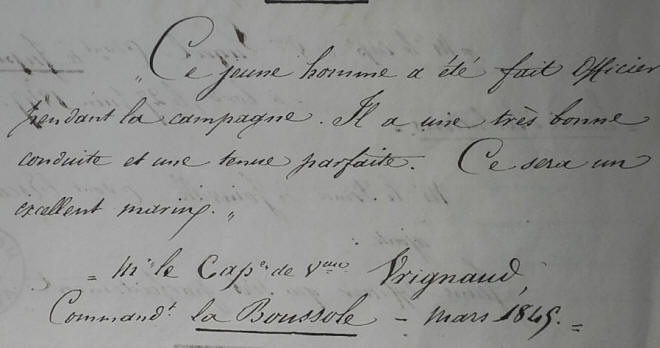 „ Ce jeune homme a été fait Officier
pendant la campagne. Il a une très bonne
conduite et une tenue parfaite. Ce sera un
excellent marin. „
= Mr. le Cape. de Veau. Vrignaud,
Commandt. la Boussole - Mars 1845. =